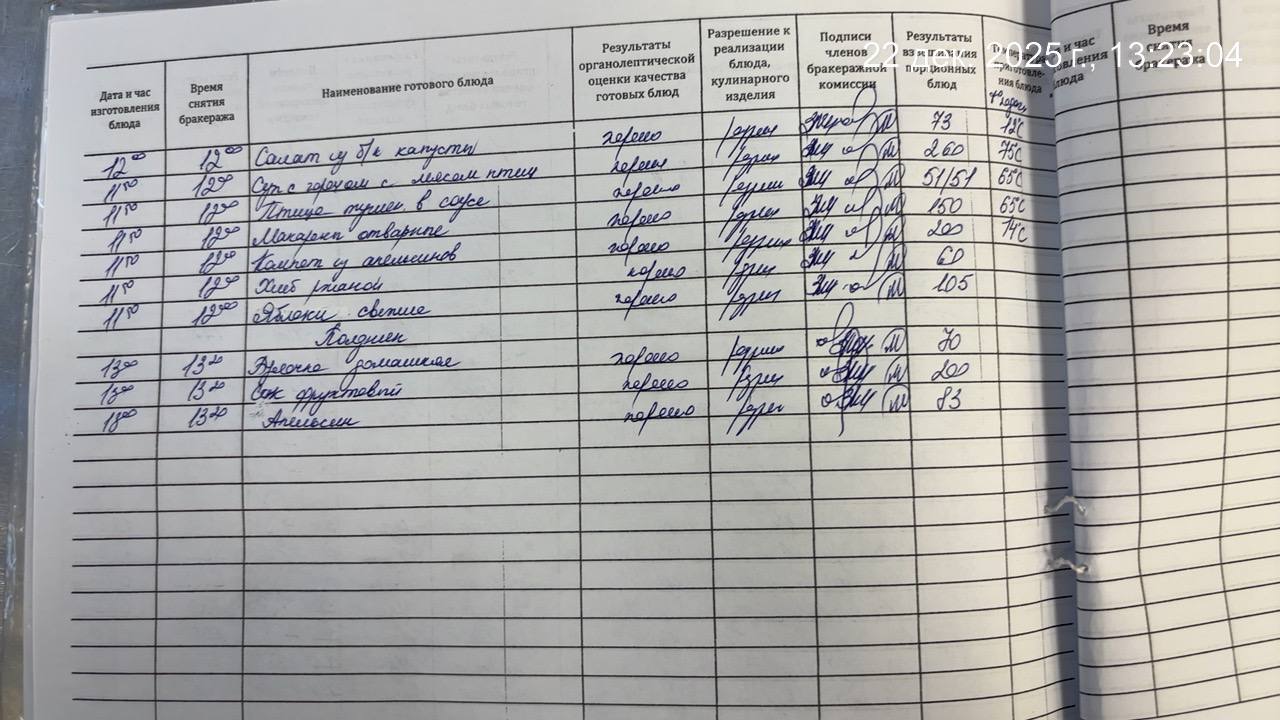 22 дек. 2025 г., 13:23:04
Дата и час изготовления блюда | Время снятия бракеража | Наименование готового блюда | Результаты органолептической оценки качества готовых блюд | Разрешение к реализации блюда, кулинарного изделия | Подписи членов бракеражной комиссии | Результаты взвешивания порционных блюд
Время
12 00 12 00 Салат из б/к капусты хорошо 73 12С
11 50 12 00 Суп с горохом с мясом птицы хорошо 260 75С
11 50 12 00 Птица тушен. в соусе хорошо 51/51 65С
11 50 12 00 Макароны отварные хорошо 150 65С
11 50 12 00 Компот из апельсинов хорошо 200 74С
11 50 12 00 Хлеб ржаной хорошо 60
11 50 12 00 Яблоки свежие хорошо 105
Полдник
13 00 13 20 Булочка домашняя хорошо 70
13 00 13 20 Сок фруктовый хорошо 200
13 00 13 20 Апельсин хорошо 83